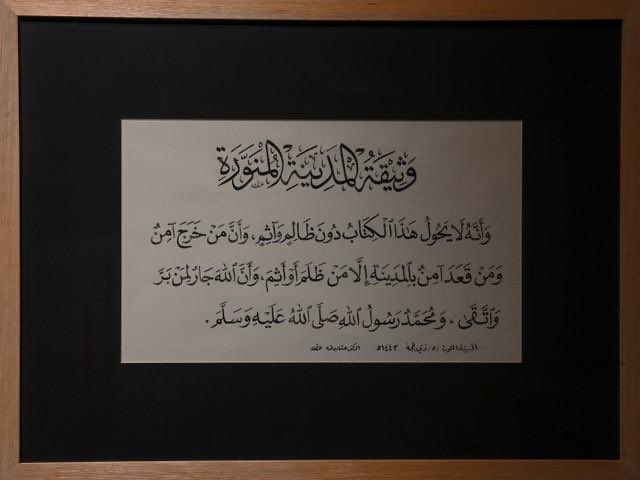 وَثِيقَةُ الْمَدِينَةِ الْمُنَوَّرَةِ
وَأَنَّهُ لَا يَحُولُ هَذَا ٱلْكِتَابُ دُونَ ظَالِمٍ وَآثِمٍ، وَأَنَّ مَنْ خَرَجَ آمِنٌ
وَمَنْ قَعَدَ آمِنٌ بِالْمَدِينَةِ إِلَّا مَنْ ظَلَمَ أَوْ أَثِمَ، وَأَنَّ ٱللهَ جَارٌ لِمَنْ بَرَّ
وَٱتَّقَىٰ، وَمُحَمَّدٌ رَسُولُ ٱللهِ صَلَّى ٱللهُ عَلَيْهِ وَسَلَّمَ.
المدينة المنورة ١٥/ذي الحجة ١٤٤٣هـ الدكتور عثمان طه